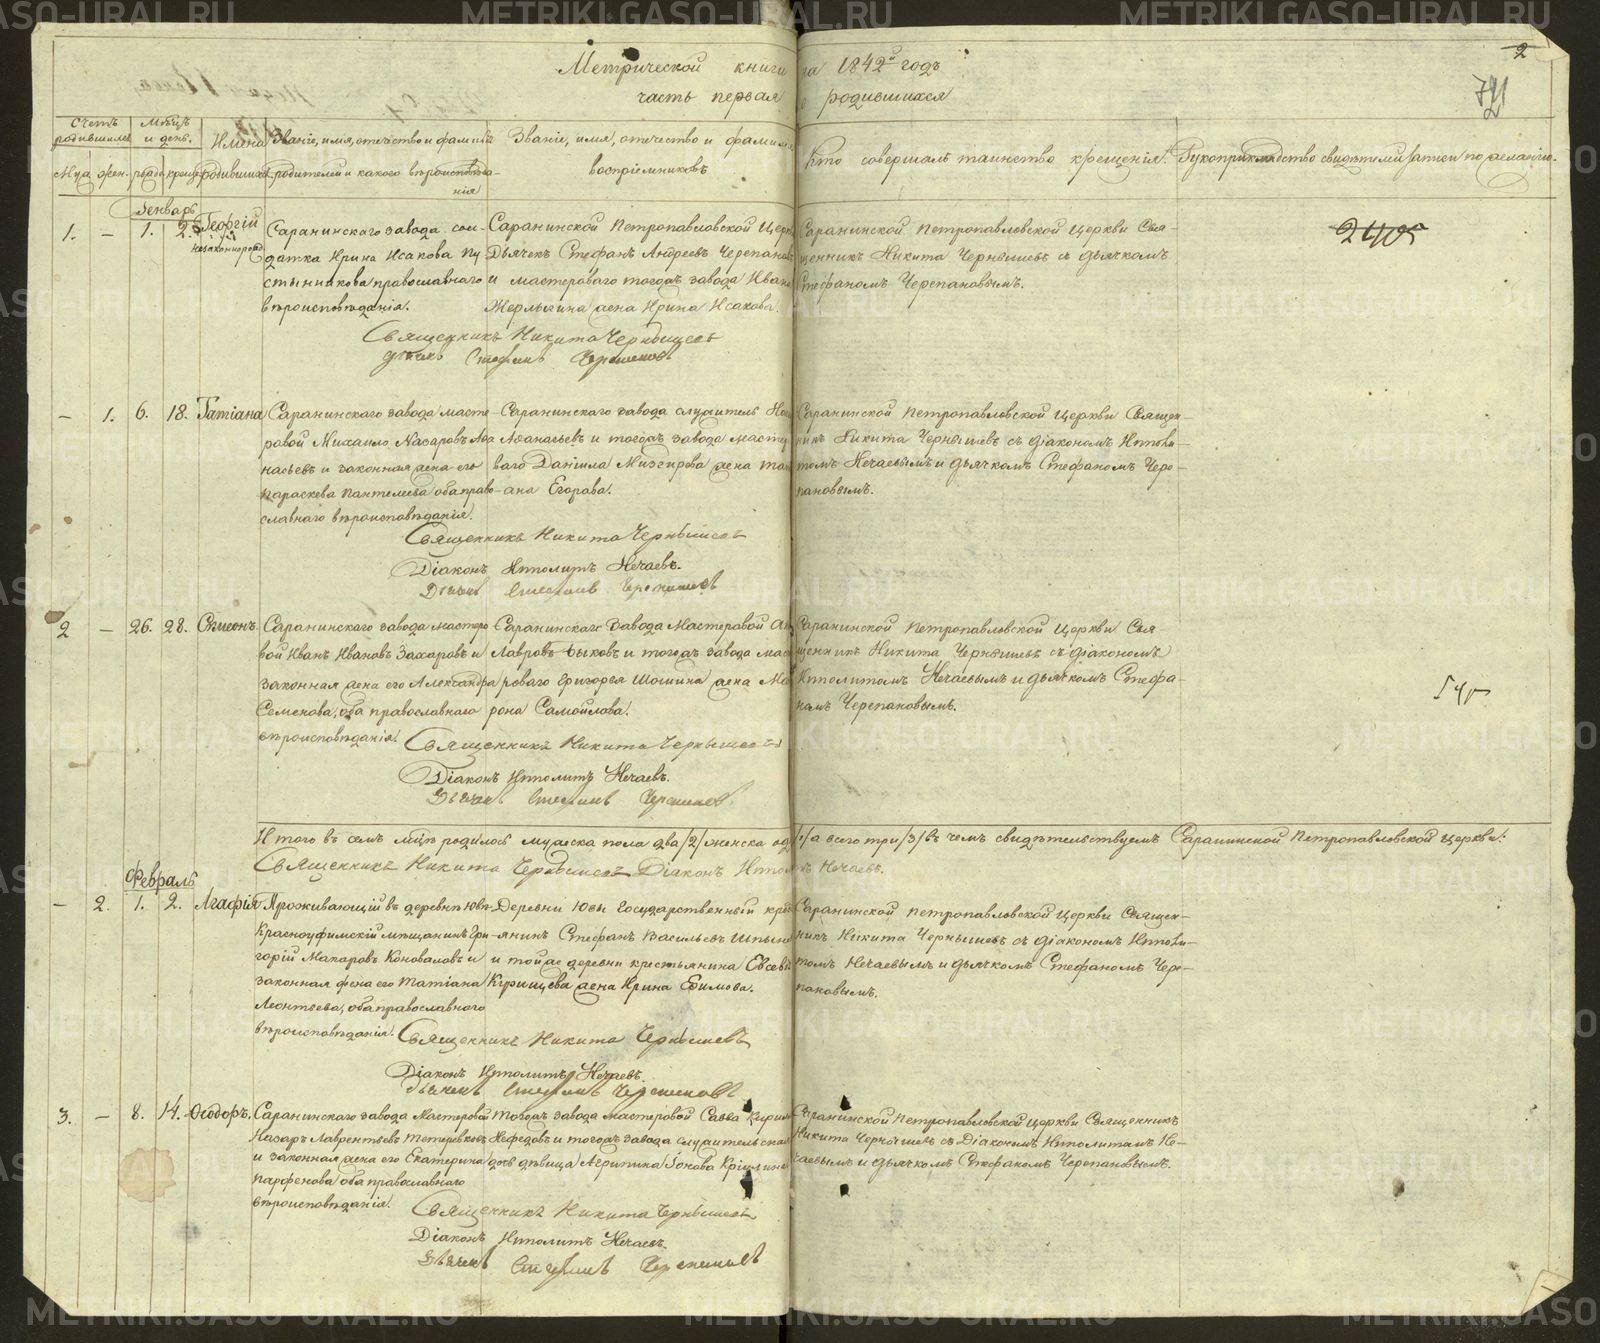 Метрической книги на 1842й годъ
часть первая о родившихся
2
Счетъ родившихся
Мѣсяцъ и день.
Имена родившихся
Званіе, имя, отчество и фамилія родителей и какого вѣроисповѣданія
Званіе, имя, отчество и фамилія воспріемниковъ
Кто совершалъ таинство крещенія.
Рукоприкладство свидѣтелей записи по желанію.
Муж. жен.
рожд. крещ.
Генварь
1. – 1. 2. Георгій
незаконнорожд
Саранинскаго завода сол-
датка Ирина Исакова Пу
стынникова православнаго
вѣроисповѣданія.
Саранинской Петропавловской Церкви
Дьячекъ Стефанъ Андреевъ Черепановъ
и мастероваго тогожъ завода Ивана
Жерлыгина жена Ирина Исакова.
Саранинской Петропавловской Церкви Свя-
щенникъ Никита Чернышевъ съ дьячкомъ
Стефаномъ Черепановымъ.
2405
Священникъ Никита Чернышевъ
дьячекъ Стефанъ Черепановъ
– 1. 6. 18. Татіана
Саранинскаго завода масте-
ровой Михаило Назаровъ Афа
насьевъ и законная жена его
Параскева Пантелеева оба право-
славнаго вѣроисповѣданія.
Саранинскаго завода служитель
Афанасьевъ и тогожъ завода мастеро
ваго Даніила Мизгирева жена Тать
яна Егорова.
Саранинской Петропавловской Церкви Священ-
никъ Никита Чернышевъ съ діакономъ Ипполи-
томъ Нечаевымъ и дьячкомъ Стефаномъ Чере-
пановымъ.
Священникъ Никита Чернышевъ
Діаконъ Ипполитъ Нечаевъ.
Дьячекъ Стефанъ Черепановъ
2 – 26. 28. Симеонъ.
Саранинскаго завода мастеро
вой Иванъ Ивановъ Захаровъ и
законная жена его Александра
Семенова, оба православнаго
вѣроисповѣданія.
Саранинскаго завода Мастеровой
Лавровъ Быковъ и тогожъ завода масте
роваго Григорья Шошина жена Мат
рона Самойлова.
Саранинской Петропавловской Церкви Свя
щенникъ Никита Чернышевъ съ діакономъ
Ипполитомъ Нечаевымъ и дьячкомъ Стефа-
номъ Черепановымъ.
Священникъ Никита Чернышевъ
Діаконъ Ипполитъ Нечаевъ.
Дьячекъ Стефанъ Черепановъ
Итого въ семъ мѣсяцѣ родилось мужеска пола два /2/ женска одна /1/ а всего три /3/ въ чемъ свидѣтельствуемъ Саранинской Петропавловской Церкви:
Священникъ Никита Чернышевъ Діаконъ Ипполитъ Нечаевъ.
Февраль
– 2. 1. 2. Агафія
Проживающій въ деревнѣ Ювѣ
Красноуфимскій мѣщанинъ Гри-
горій Макаровъ Коноваловъ и
законная жена его Татіана
Леонтьева, оба православнаго
вѣроисповѣданія.
Деревни Ювы Государственный крест
янинъ Стефанъ Васильевъ
и тойже деревни крестьянина Евсевія
жена Ирина Ефимова.
Саранинской Петропавловской Церкви Священ-
никъ Никита Чернышевъ съ діакономъ Ипполи-
томъ Нечаевымъ и дьячкомъ Стефаномъ Чере-
пановымъ.
Священникъ Никита Чернышевъ
Діаконъ Ипполитъ Нечаевъ.
Дьячекъ Стефанъ Черепановъ
3. – 8. 14. Ѳеодоръ.
Саранинскаго завода Мастеровой
Назаръ Лаврентьевъ Тетеревковъ
и законная жена его Екатерина
Парфенова оба православнаго
вѣроисповѣданія.
Тогожъ завода мастеровой Савва
Нефедовъ и тогожъ завода служительская
дочь дѣвица Агрипина Іонова
Саранинской Петропавловской Церкви Священникъ
Никита Чернышевъ съ Діакономъ Ипполитомъ Не-
чаевымъ и дьячкомъ Стефаномъ Черепановымъ.
Священникъ Никита Чернышевъ
Діаконъ Ипполитъ Нечаевъ.
Дьячекъ Стефанъ Черепановъ
METRIKI.GASO-URAL.RU